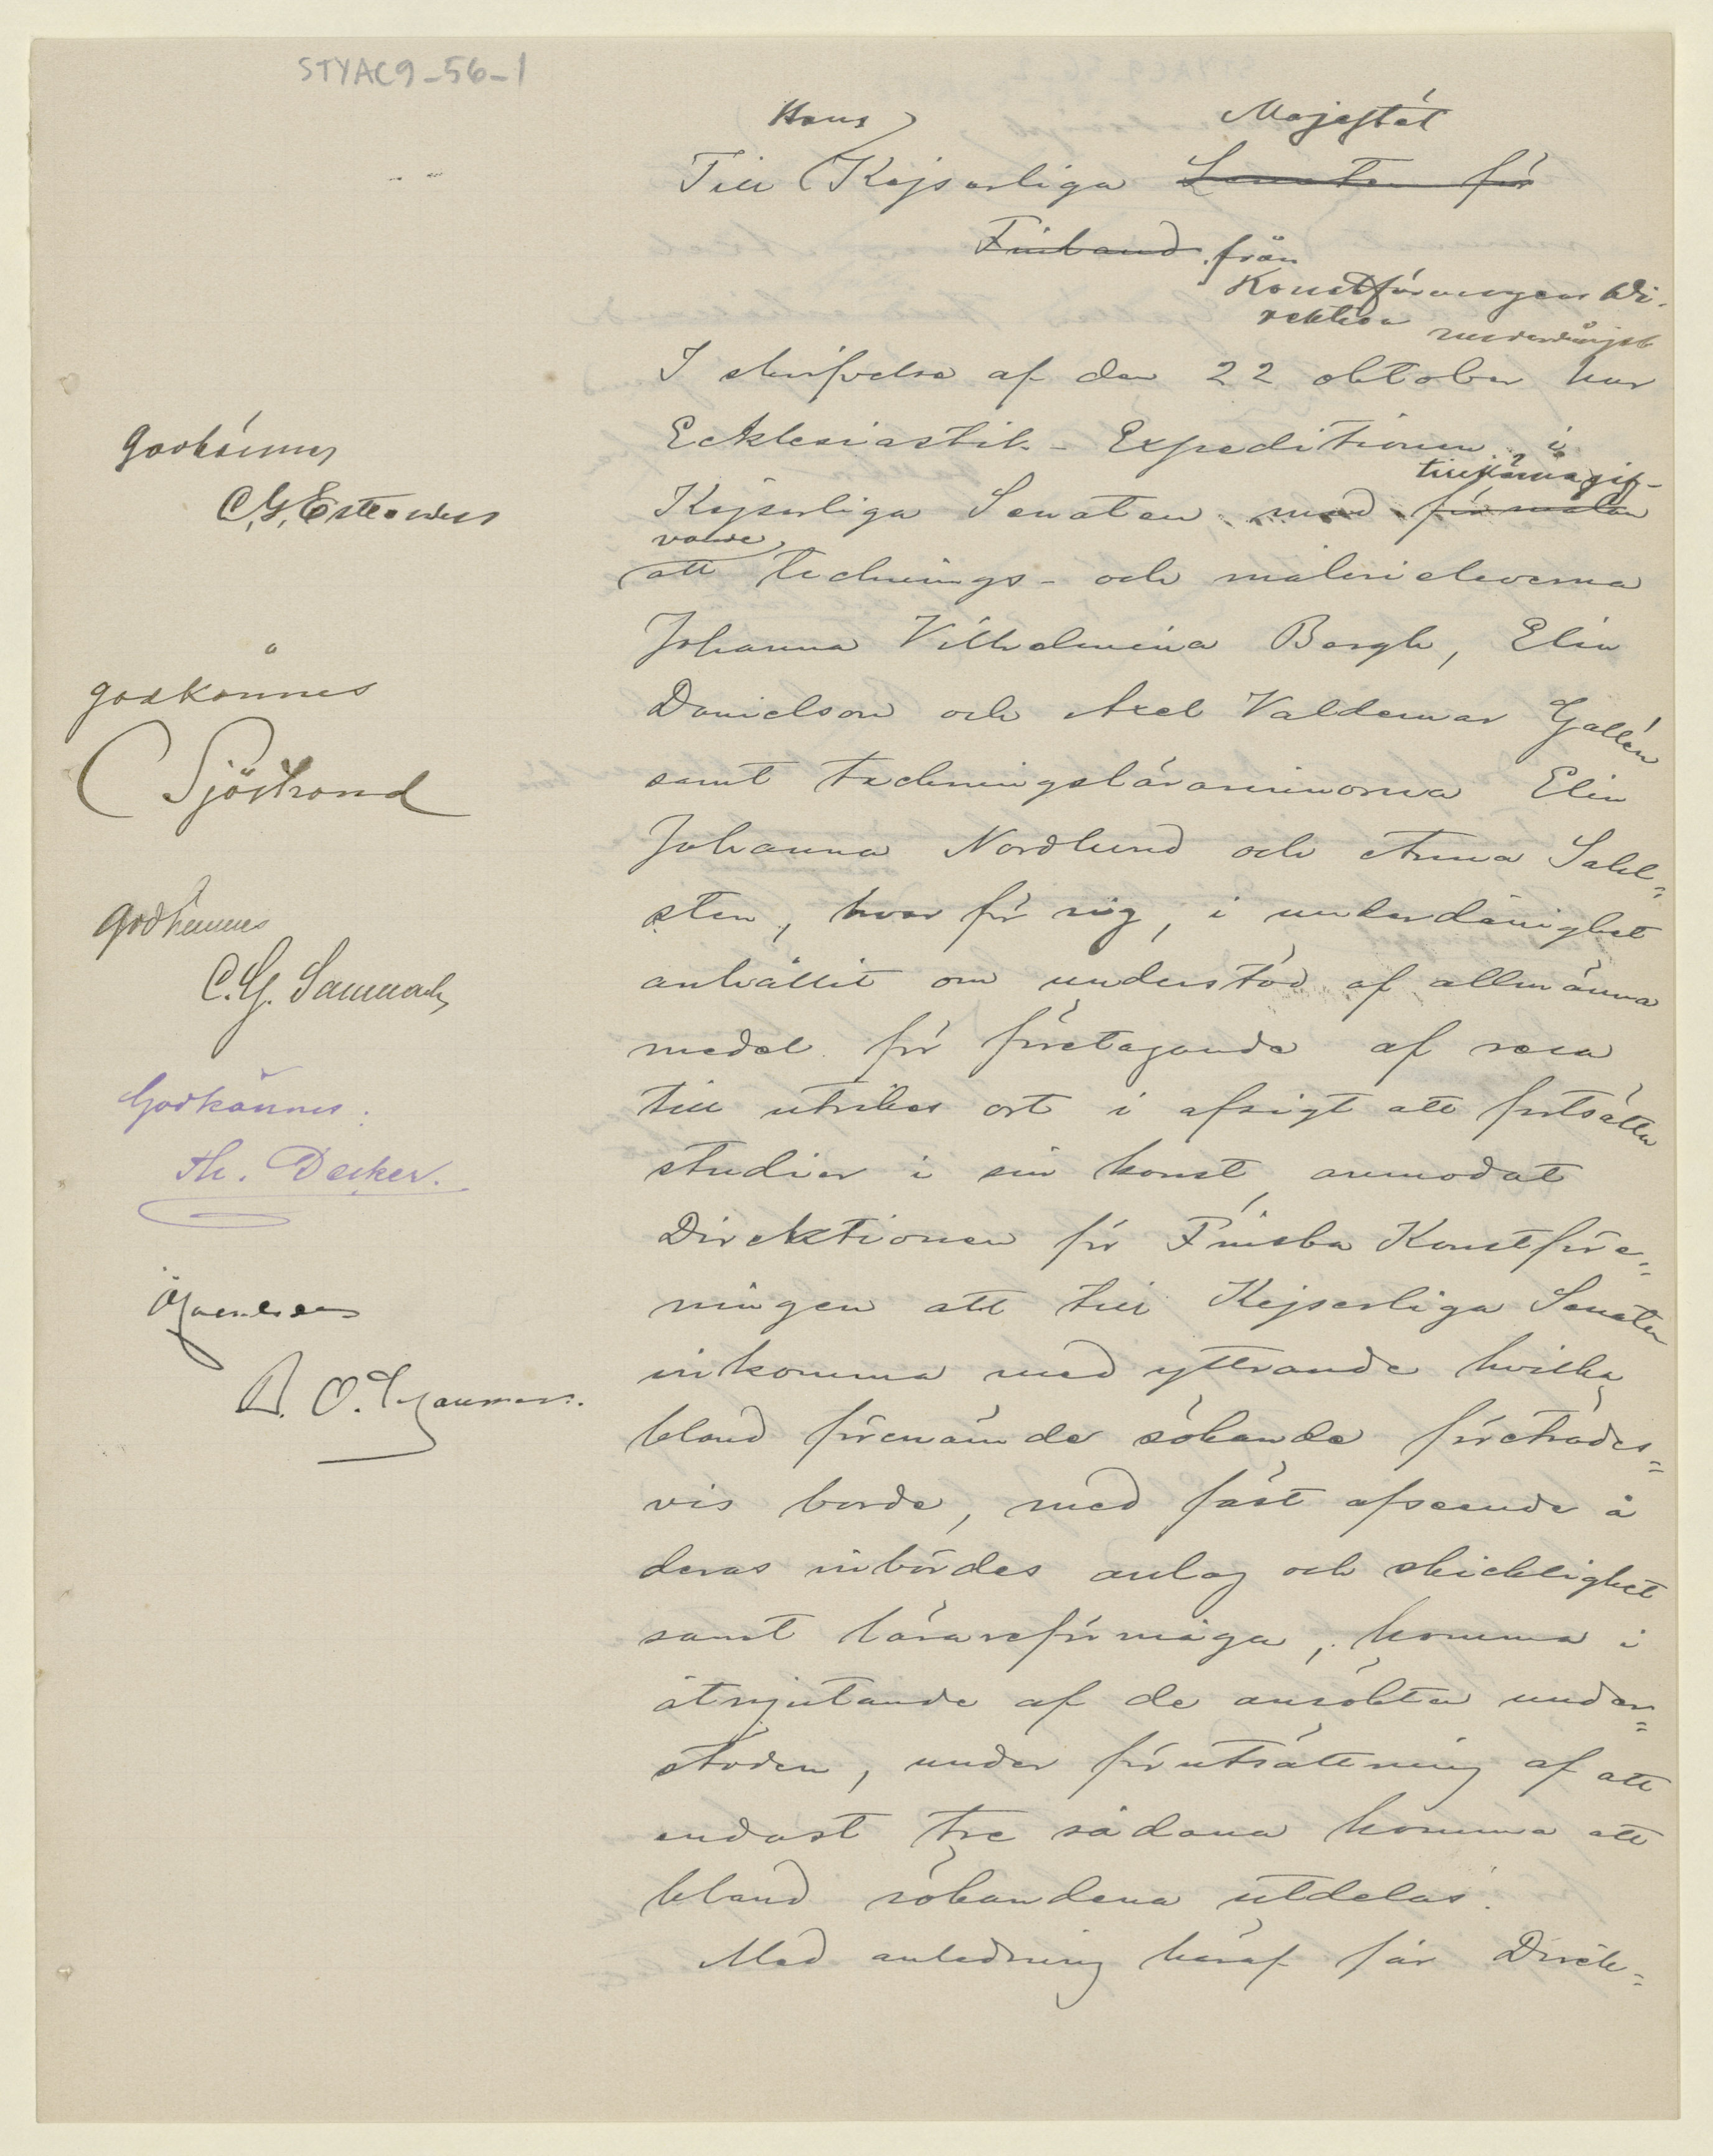 STYAC9-56-1
Hans Majestät
Till Kejserliga Senaten för
Finland. från
Konstföreningens Di-
rektion underdånigst
I skrifvelse af den 22 oktober har
Ecklesiastik-Expeditionen i
tillkännagif-
Kejserliga Senaten, med förmälan
vande,
att tecknings- och målerieleverna
Johanna Vilhelmina Bergh, Elin
Danielson och Axel Valdemar Gallén
samt teckningslärarinnorna Elin
Johanna Nordlund och Anna Sahl=
sten, hvar för sig, i underdånighet
anhållit om understöd af allmänna
medel för företagande af resa
till utrikes ort i afsigt att fortsätta
studier i sin konst, anmodat
Direktionen för Finska Konstföre=
ningen att till Kejserliga Senaten
inkomma med yttrande hvilka
bland förenämnde sökande företrädes=
vis borde, med fäst afseende å
deras inbördes anlag och skicklighet
samt lärareförmåga, komma i
åtnjutande af de ansökta under=
stöden, under förutsättning af att
endast tre sådana komma att
bland sökandena utdelas.
Med anledning häraf får Direk=
Godkännes
C. G. Estlander
godkännes
C Sjöstrand
Godkännes
C. G. Sanmark
Godkännes:
Th. Decker.